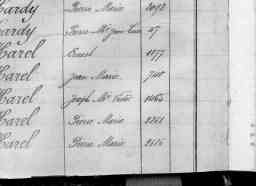 Hardy Pierre Marie 2098
Hardy Pierre Mie Jean Louis 47
Harel Ernest 1877
Harel Jean Marie 740
Harel Joseph Mie Victor 1065
Harel Pierre Marie 1261
Harel Pierre Marie 2116